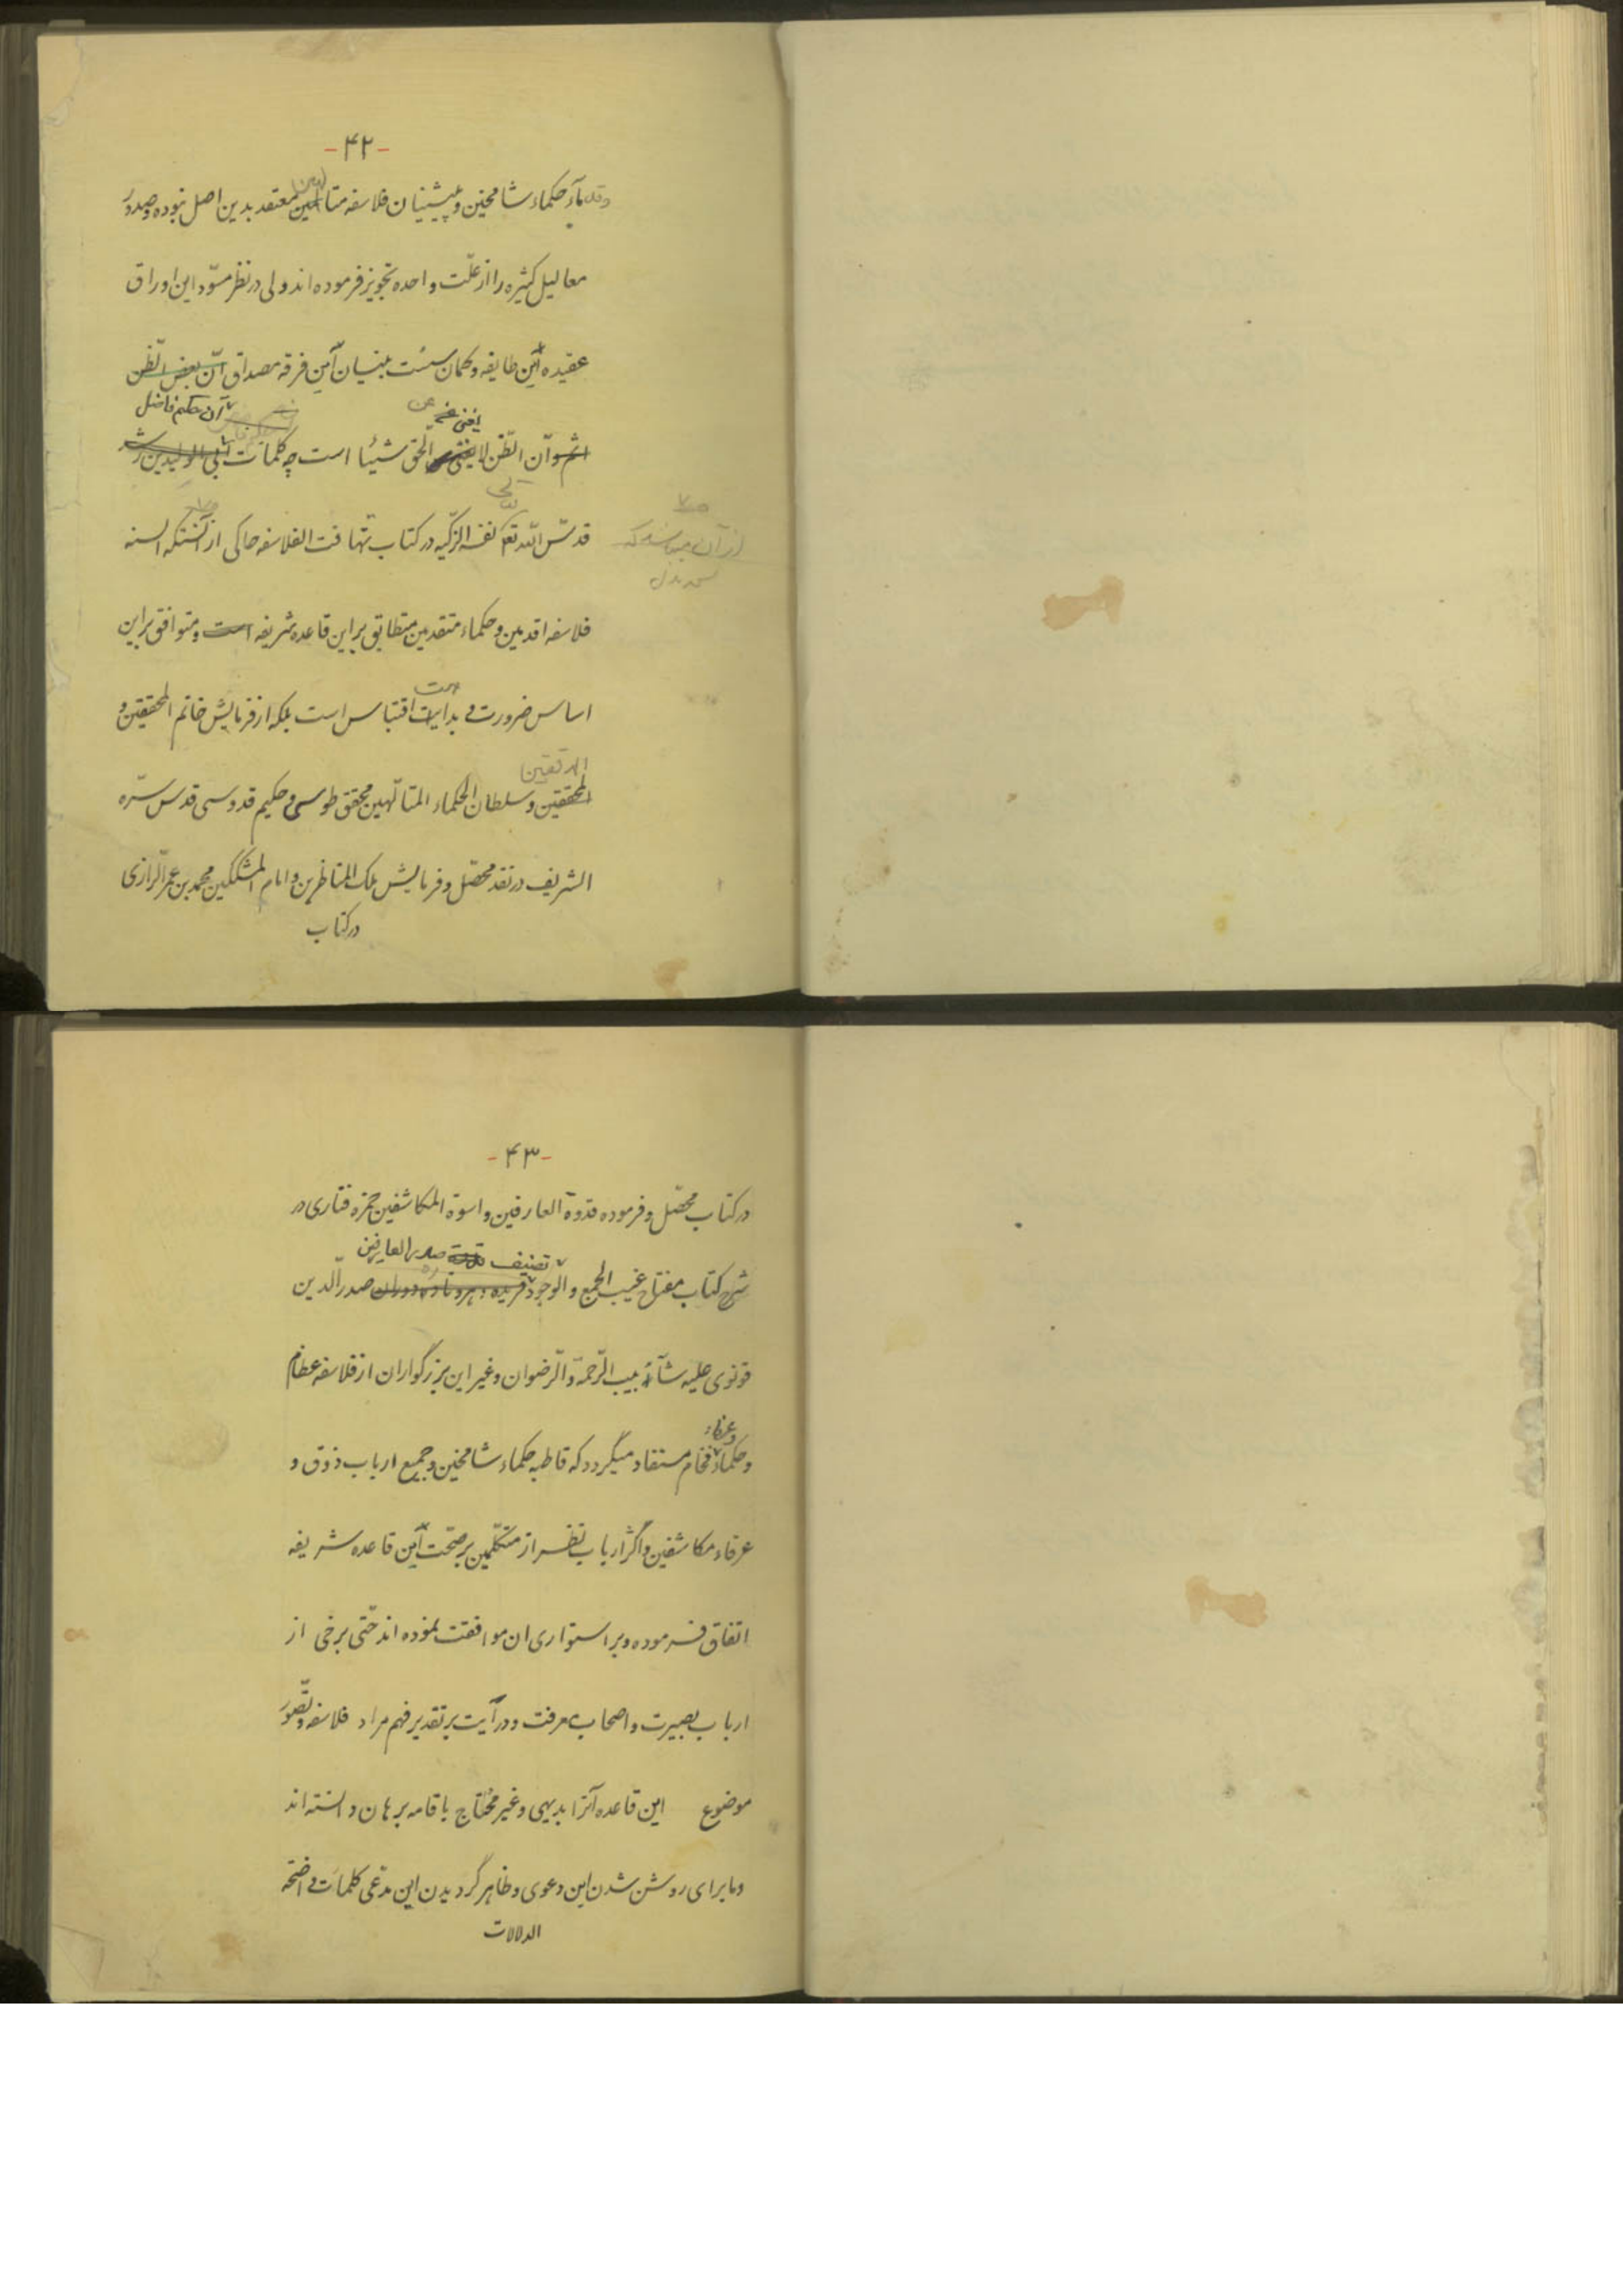 -۴۲-
وقدماء حکماء شامخین و پیشینیان فلاسفه متالهین معتقد بدین اصل نبوده وصدور
معالیل کثیره را از علّت واحده تجویز فرموده اند ولی در نظر مسوّد این اوراق
عقیده این طایفه وگمان سست بنیان این فرقه مصداق انّ بعض الظّن
آن حکیم فاضل
یغنی عن
اثم وانّ الظّن لا یغنی الحق شیئا است چه کلمات ابی الولیدبن رشد
قدسّ الله تعالی نفسه الزکّیه در کتاب تهافت الفلاسفه حاکی از آنستکه السنه
از آن میباشد که
فلاسفه اقدمین وحکماء متقدمین متطابق بر این قاعده شریفه است ومتوافق براین
اساس ضرورت و بداهت اقتباس است بلکه از فرمایش خاتم المحققین و
المدققین
المحققین وسلطان الحکماء المتالّهین محقق طوسی و حکیم قدوسی قدس سّره
الشریف در نقد محصّل وفرمایش ملک المناظرین وامام المشککین محمد بن عمر الّرازی
در کتاب
-۴۳-
در کتاب محصّل وفرموده قدوة العارفین واسوة المکاشفین حمزه فناری در
تصنیف قدوة صدر العارفین
شرح کتاب مفتاح غیب الجمع والوجود فریده دهر ونادره دوران صدر الّدین
قونوی علیه شآبیب الّرحمة والّرضوان وغیر این بزرگواران از فلاسفه عظام
وعرفاء
وحکماء فخام مستفاد میگردد که قاطبه حکماء شامخین وجمیع ارباب ذوق و
عرفاء مکاشفین واکثر ارباب نظر از متکلّمین بر صحّت این قاعده شریفه
اتفاق فرموده وبر استواری ان موافقت نموده اند حتّی برخی از
ارباب بصیرت واصحاب معرفت ودرایت بر تقدیر فهم مراد فلاسفه وتصّور
موضوع این قاعده آنرا بدیهی وغیر محتاج باقامه برهان دانسته اند
وما برای روشن شدن این دعوی وظاهر گردیدن این مدّعی کلمات واضحة
الدلالات